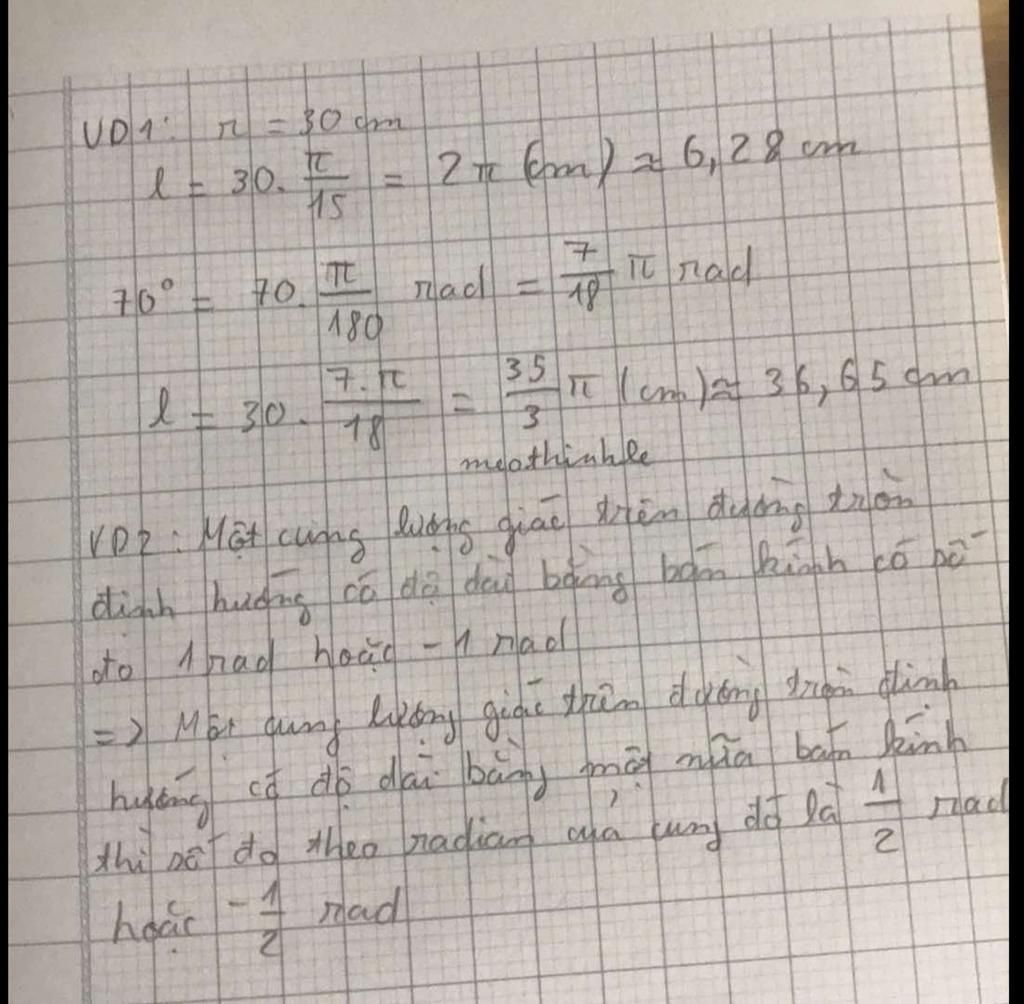 VD1: r = 30 cm
l = 30. π/15 = 2π (cm) ≈ 6,28 cm
70° = 70. π/180 rad = 7/18 π rad
l = 30. 7.π/18 = 35/3 π (cm) ≈ 36,65 cm
meothinhle
VD2: Một cung lượng giác trên đường tròn
định hướng có độ dài bằng bán kính có số
đo 1 rad hoặc - 1 rad
=> Một cung lượng giác trên đường tròn định
hướng có độ dài bằng một nửa bán kính
thì số đo theo radian của cung đó là 1/2 rad
hoặc - 1/2 rad